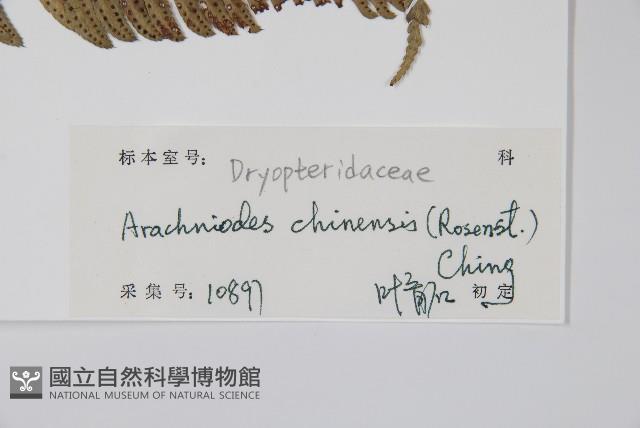 标本室号: Dryopteridaceae 科
Arachniodes chinensis (Rosenst.)
Ching
采集号: 10897 叶 初定
國立自然科學博物館
NATIONAL MUSEUM OF NATURAL SCIENCE